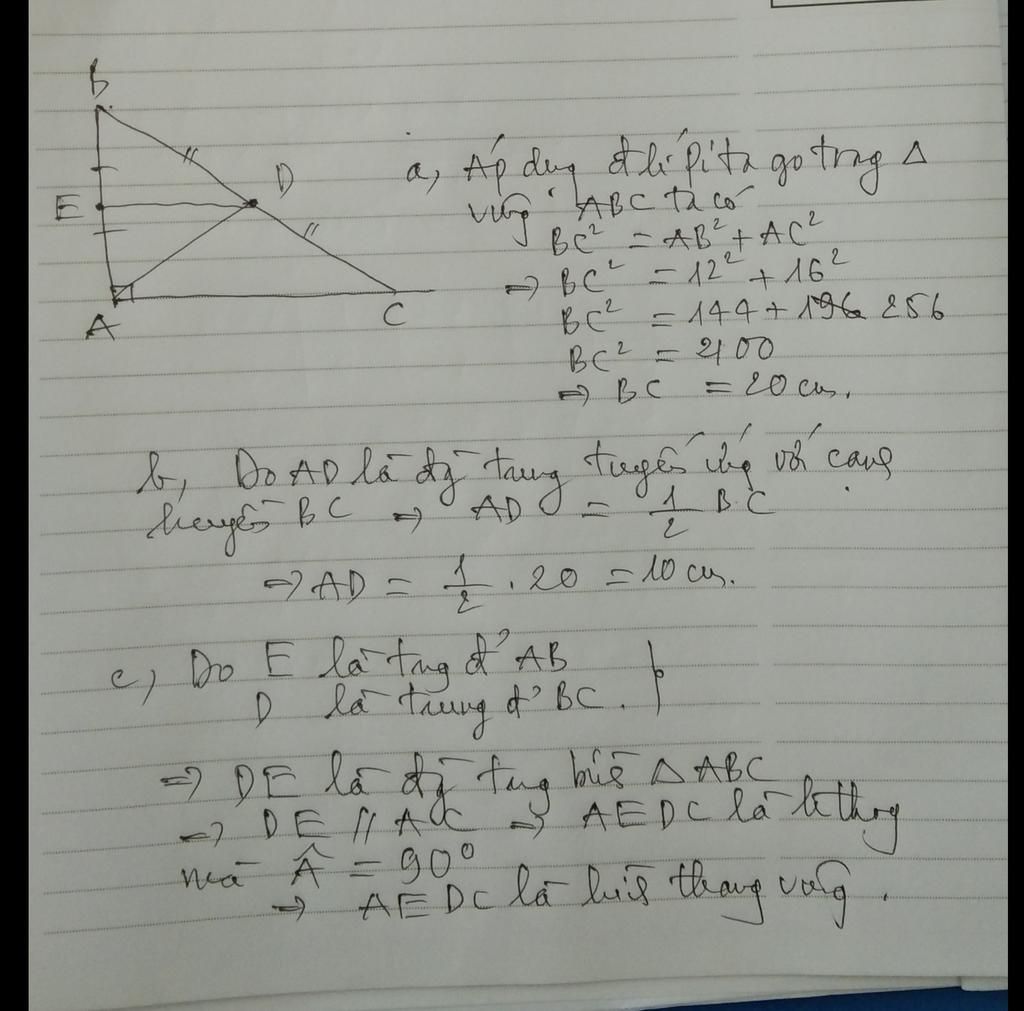 B
D
E
A
C
a, Áp dụng đ lí Pi ta go trong Δ
vuông ABC ta có
BC² = AB² + AC²
⇒ BC² = 12² + 16²
BC² = 144 + 196 256
BC² = 400
⇒ BC = 20 cm.
b, Do AD là đg trung tuyến ứng với cạnh
huyền BC ⇒ AD = 1/2 BC
⇒ AD = 1/2 . 20 = 10 cm.
c, Do E là trng đ' AB
D là trung đ' BC.
⇒ DE là đg trung bình Δ ABC
⇒ DE // AC ⇒ AEDC là h thang
mà Â = 90°
⇒ AEDC là hình thang vuông.